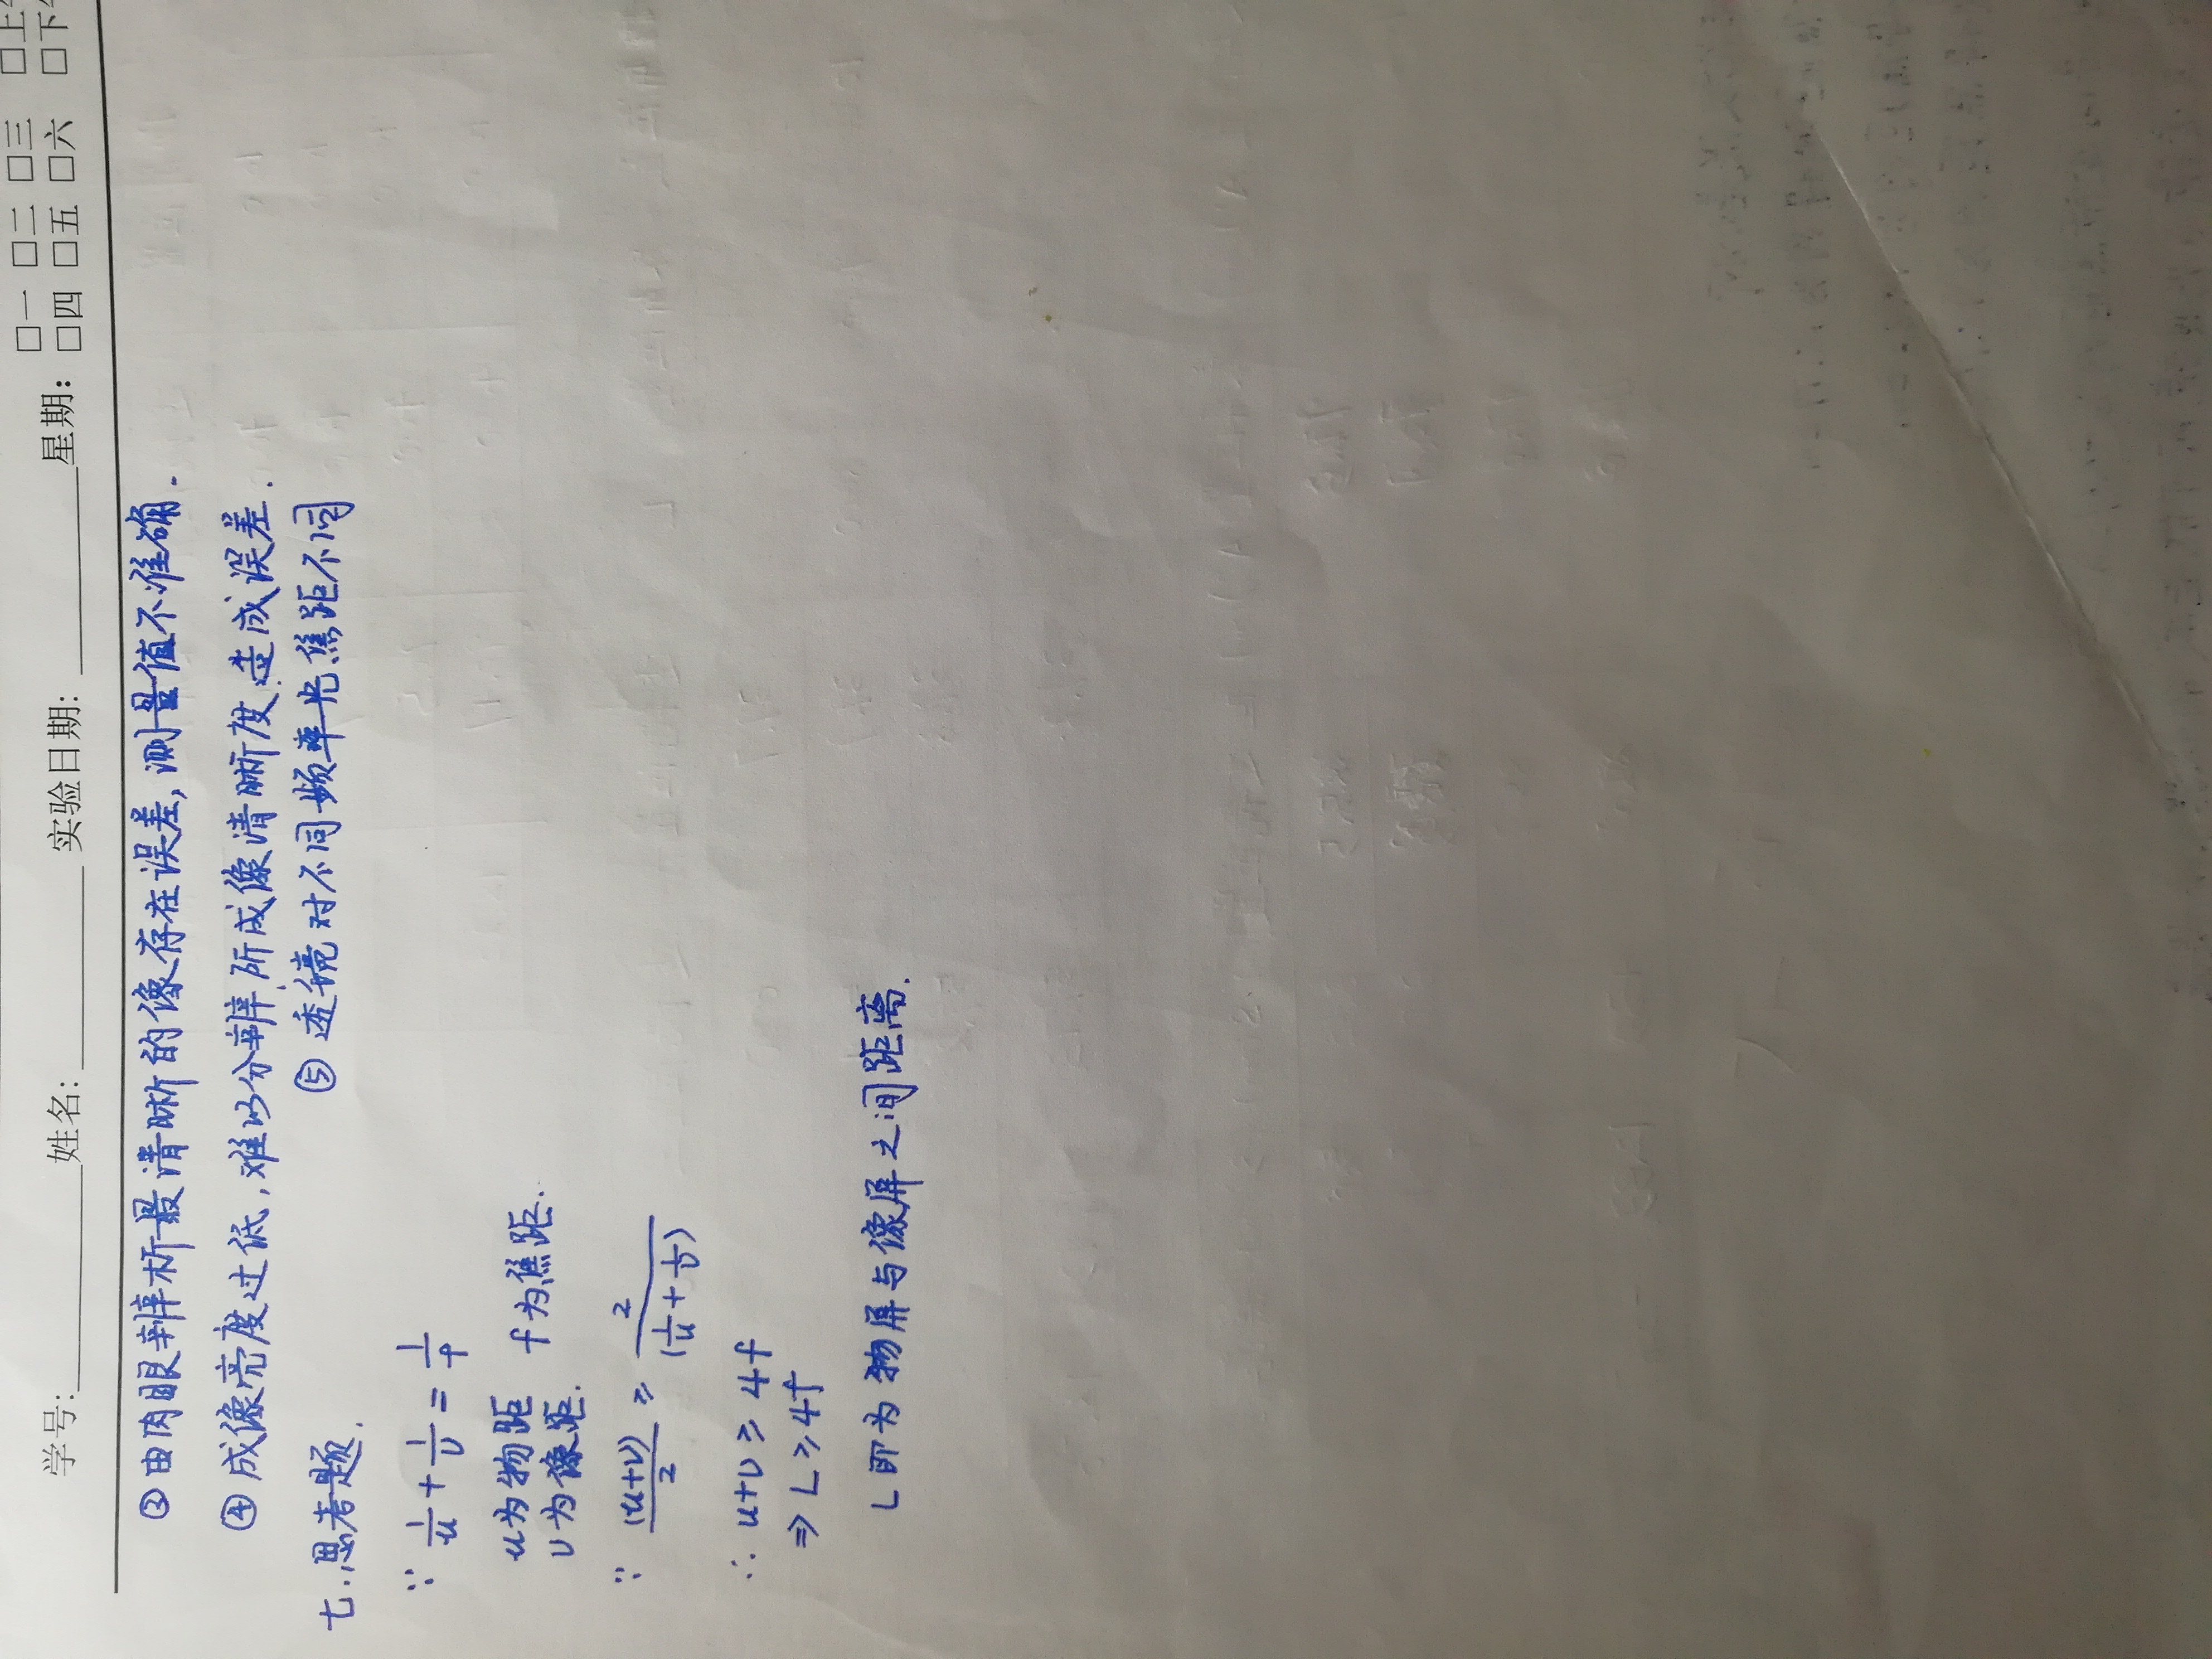 学号: 姓名: 实验日期: 星期: □一 □二 □三 □上
□四 □五 □六 □下
③ 由肉眼辨析最清晰的像存在误差, 测量值不准确.
④ 成像亮度过低, 难以分辨所成像清晰度, 造成误差.
⑤ 透镜对不同频率光焦距不同
七. 思考题.
∵ 1/u + 1/v = 1/f
u为物距 f为焦距.
v为像距.
∵ (u+v)/2 ≥ 2/(1/u + 1/v)
∴ u+v ≥ 4f
⇒ L ≥ 4f
L 即为物屏与像屏之间距离.